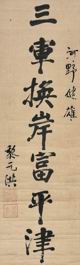 河野健雄
三軍揆岸富平津
黎元洪